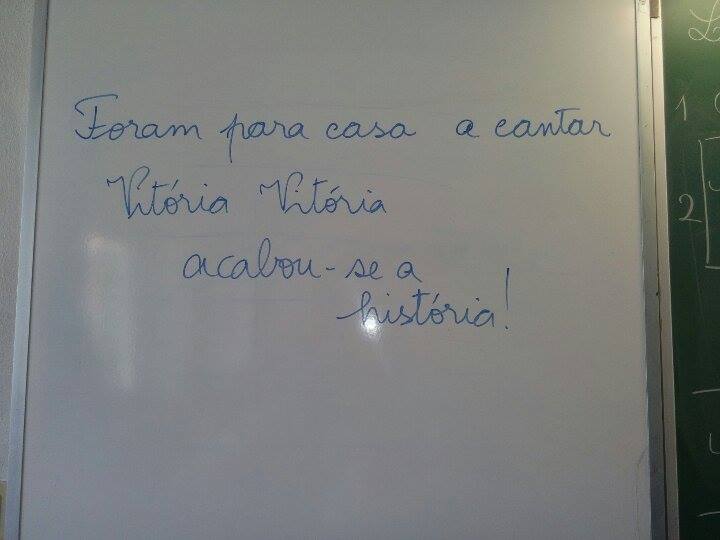 Foram para casa a cantar
Vitória Vitória
acabou-se a
história!
1
2